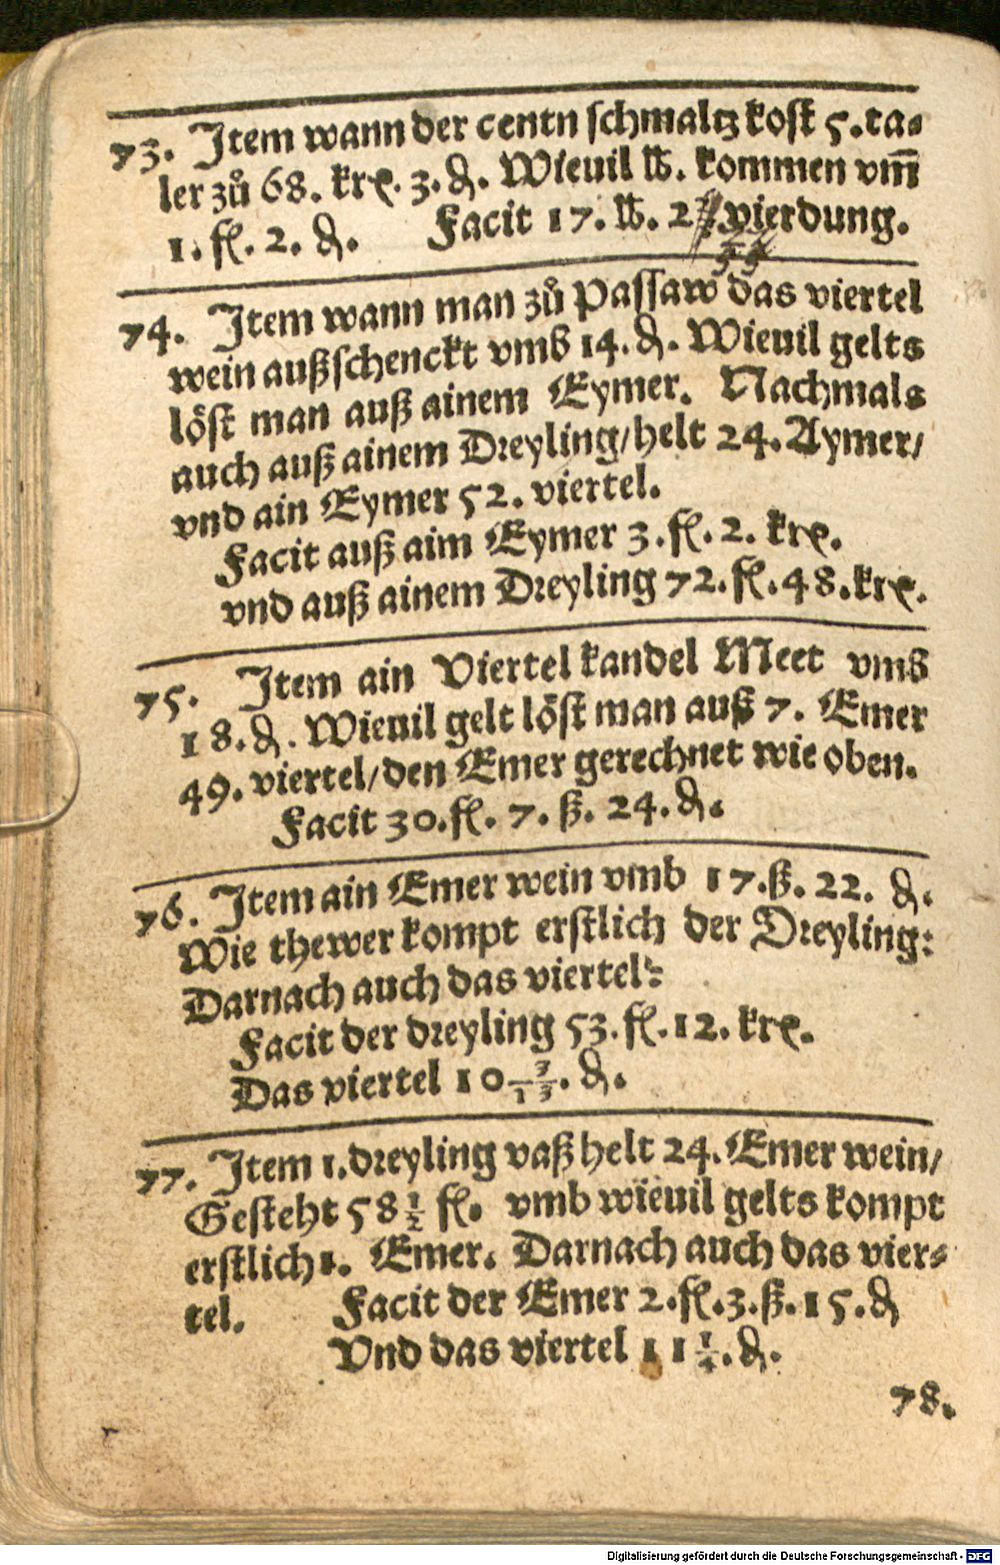 73. Item wann der centn schmaltz kost 5. ta⸗
ler zů 68. krx. 3. ₰. Wieuil ℔. kommen vm̄
1. fl. 2. ₰. Facit 17. ℔. 2 vierdung.
74. Item wann man zů Passaw das viertel
wein außschenckt vmb 14. ₰. Wieuil gelts
löst man auß ainem Eymer. Nachmals
auch auß ainem Dreyling/helt 24. Aymer/
vnd ain Eymer 52. viertel.
Facit auß aim Eymer 3. fl. 2. krx.
vnd auß ainem Dreyling 72. fl. 48. krx.
75. Item ain Viertel kandel Meet vmb
18. ₰. Wieuil gelt löst man auß 7. Emer
49. viertel/den Emer gerechnet wie oben.
Facit 30. fl. 7. ß. 24. ₰.
76. Item ain Emer wein vmb 17. ß. 22. ₰.
Wie thewer kompt erstlich der Dreyling:
Darnach auch das viertel:
Facit der dreyling 53. fl. 12. krx.
Das viertel 10 3/13. ₰.
77. Item 1. dreyling vaß helt 24. Emer wein/
Gesteht 58 1/2 fl. vmb wieuil gelts kompt
erstlich 1. Emer. Darnach auch das vier⸗
tel. Facit der Emer 2. fl. 3. ß. 15. ₰
Vnd das viertel 11 1/4. ₰.
78.
Digitalisierung gefördert durch die Deutsche Forschungsgemeinschaft - DFG